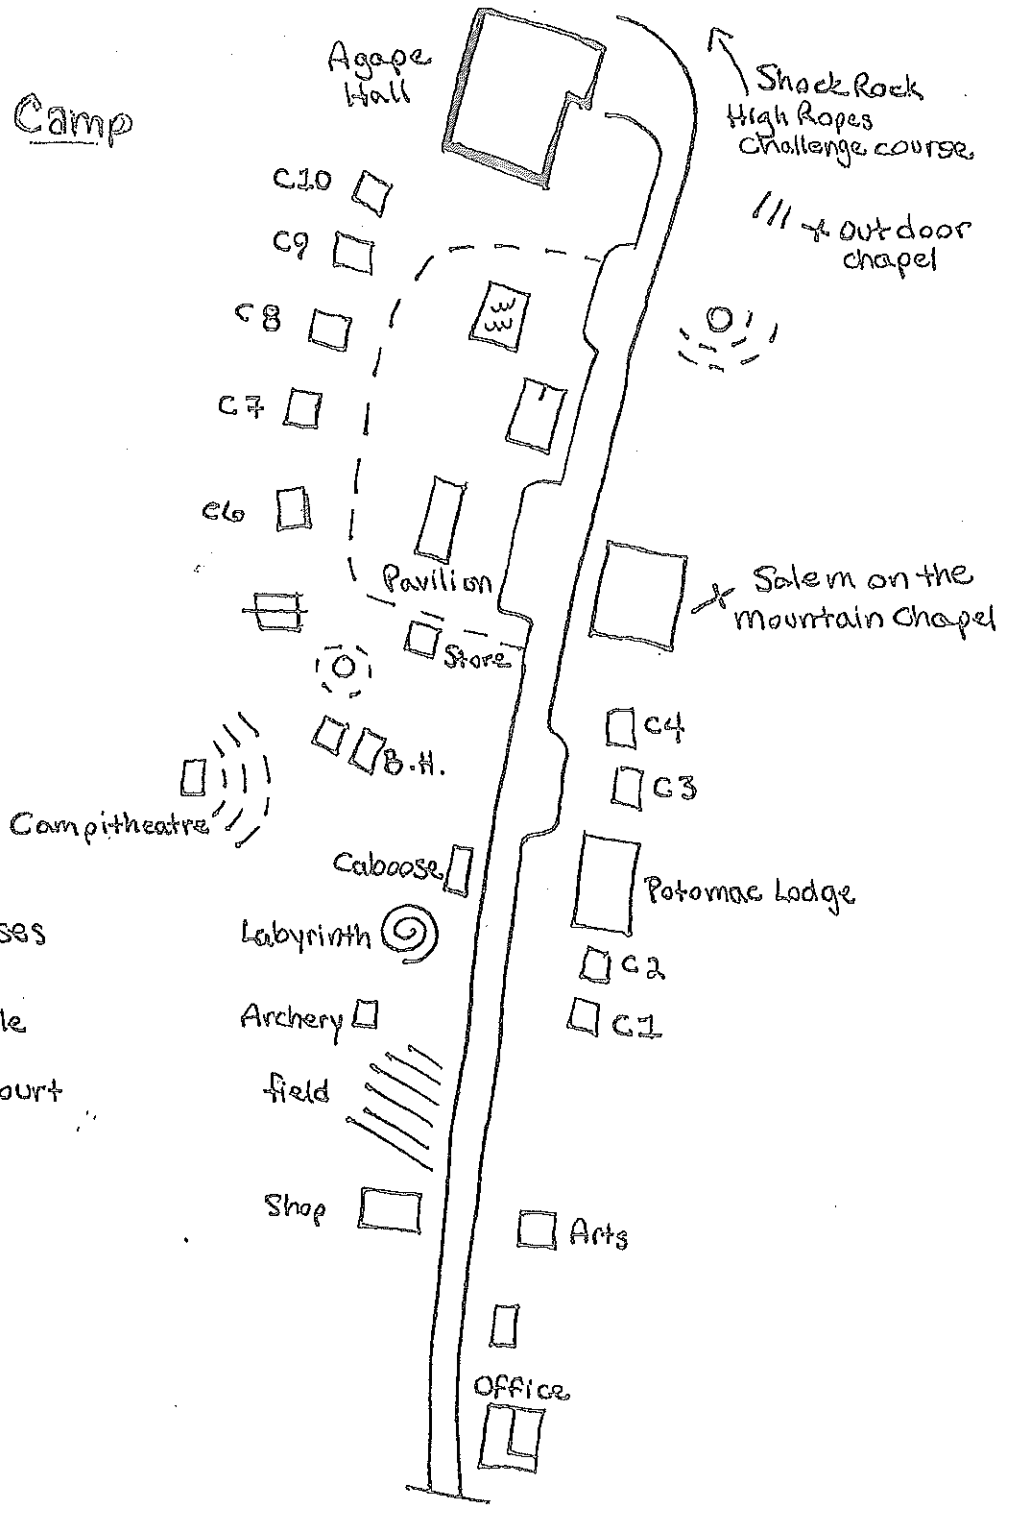 Agape
Hall
Camp
Shock Rock
High Ropes
Challenge course
C10
outdoor
chapel
C9
C8
C7
C6
Pavilion
Salem on the
mountain Chapel
Store
C4
B.H.
C3
Campitheatre
Caboose
Potomac Lodge
ses
Labyrinth
C2
le
Archery
C1
ourt
field
Shop
Arts
Office